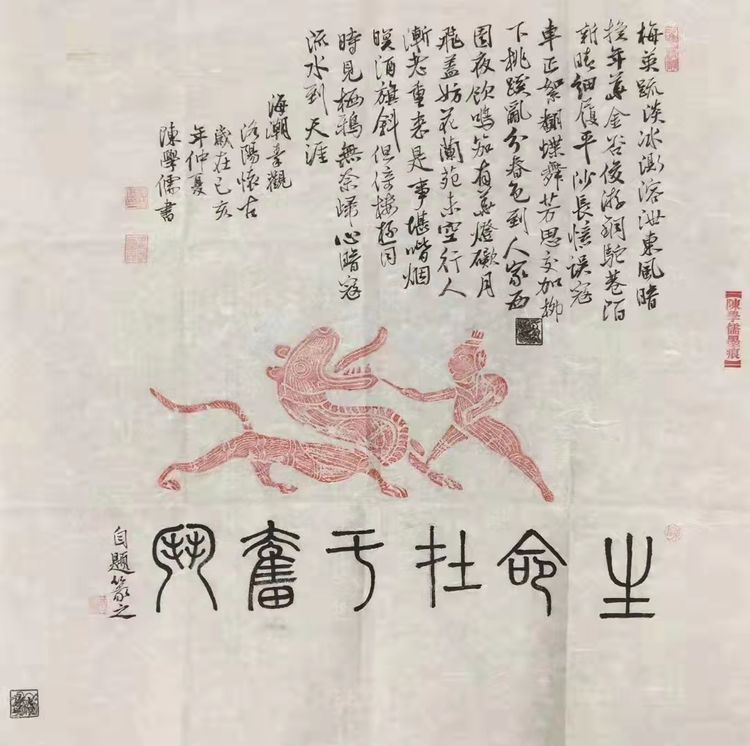 梅英疏淡冰澌溶泄東風暗
換年華金谷俊游銅駝巷陌
新晴細履平沙長憶誤随
車正絮翻蝶舞芳思交加柳
下桃蹊亂分春色到人家西
園夜飲鳴笳有華燈礙月
飛蓋妨花蘭苑未空行人
漸老重来是事堪嗟烟
暝酒旗斜但倚楼极目
時見栖鴉無奈歸心暗随
流水到天涯
海潮秦觀
洛陽懷古
歲在己亥
年仲夏
陳學儒書
陳學儒墨痕
生命在于奮鬥
自題篆之